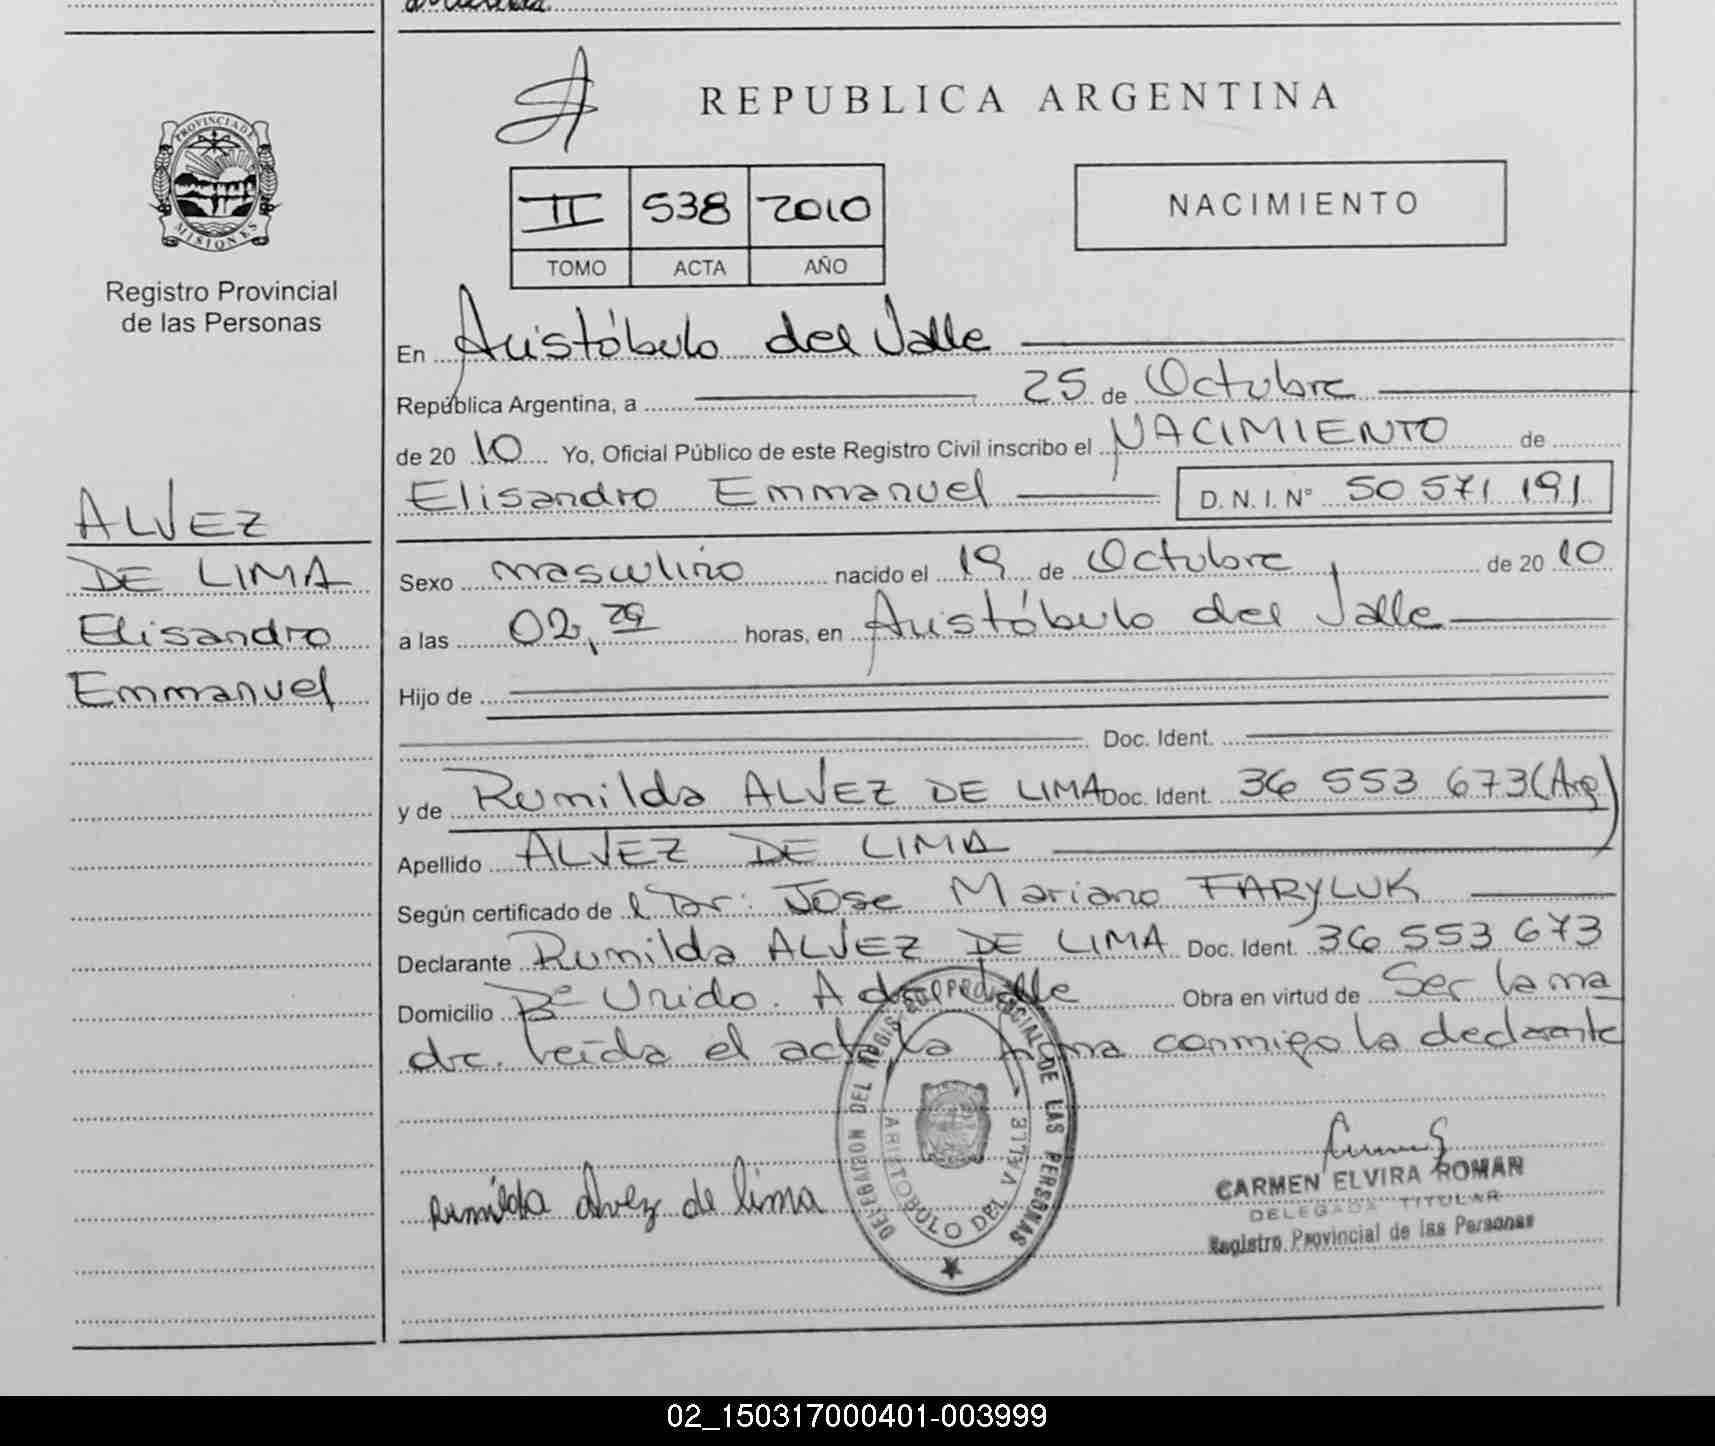 REPUBLICA ARGENTINA
PROVINCIA DE
MISIONES
Registro Provincial
de las Personas
II 538 2010
TOMO ACTA AÑO
NACIMIENTO
En Aristóbulo del Valle
República Argentina, a 25 de Octubre
de 2010 Yo, Oficial Público de este Registro Civil inscribo el NACIMIENTO de
Elisandro Emmanuel D. N. I. N° 50 571 191
ALVEZ
DE LIMA
Elisandro
Emmanuel
Sexo masculino nacido el 19 de Octubre de 2010
a las 02,29 horas, en Aristóbulo del Valle
Hijo de
Doc. Ident.
y de Rumilda ALVEZ DE LIMA Doc. Ident. 36 553 673 (Arg)
Apellido ALVEZ DE LIMA
Según certificado de l Dr: Jose Mariano FARYLUK
Declarante Rumilda ALVEZ DE LIMA Doc. Ident. 36 553 673
Domicilio B° Unido. A del Valle Obra en virtud de Ser la ma
dre. Leída el acta, la firma conmigo la declarante
DELEGACION DEL REGISTRO PROVINCIAL DE LAS PERSONAS
ARISTOBULO DEL VALLE
Rumilda alvez de lima
CARMEN ELVIRA ROMAN
DELEGADA TITULAR
Registro Provincial de las Personas
02_150317000401-003999